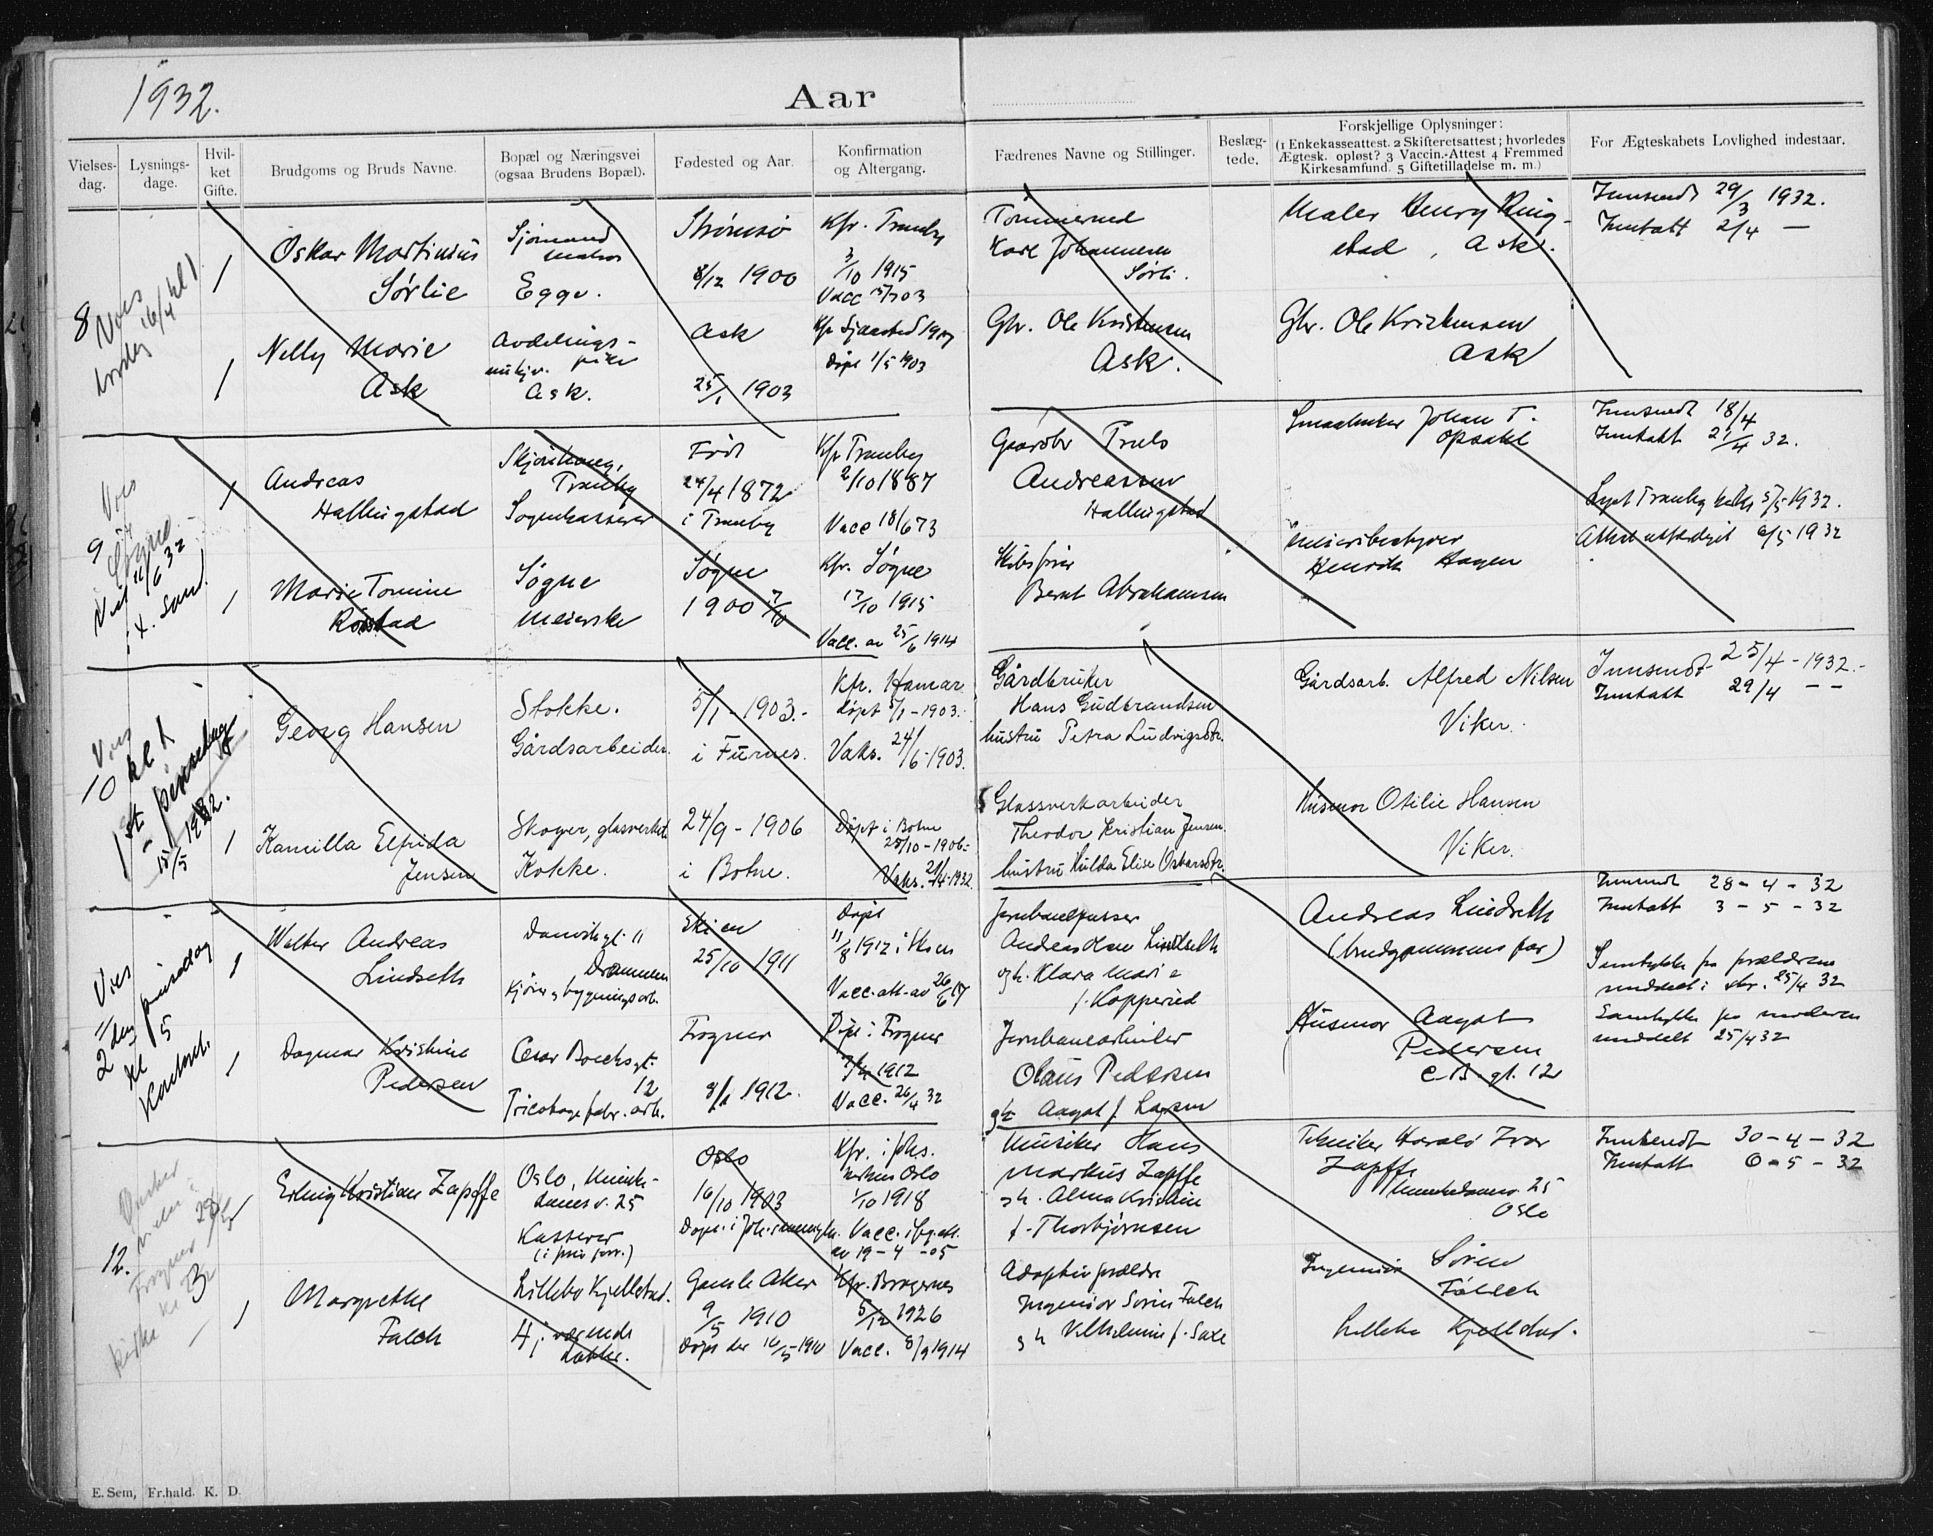 1932.
Aar
Vielses-dag.
Lysnings-dage.
Hvil-ket Gifte.
Brudgoms og Bruds Navne.
Bopæl og Næringsvei (ogsaa Brudens Bopæl).
Fødested og Aar.
Konfirmation og Altergang.
Fædrenes Navne og Stillinger.
Beslæg-tede.
Forskjellige Oplysninger: (1 Enkekasseattest. 2 Skifteretsattest; hvorledes Ægtesk. opløst? 3 Vaccin.-Attest 4 Fremmed Kirkesamfund. 5 Giftetilladelse m. m.)
For Ægteskabets Lovlighed indestaar.
8
Vies
lørdag 16/4 kl 1.
Oskar Martinius
Sørlie
Sjømand
Egge.
Strømsø
8/12 1900
Kfr. Tranby
3/10 1915
Tømmermd
Karl Johannesen
Sørli.
Maler Henry Ring-
stad, Ask.
Innsendt 29/3 1932.
Inntatt 2/4 —
Nelly Marie
Ask
Avdelings-
pike
Ask.
Ask
25/1 1903
døpt 1/5 1903
Gbr. Ole Kristensen
Ask.
Gbr. Ole Kristensen
Ask
9
Vies
Søgne
11/6 32
Andreas
Hallingstad
Tranby
Sognekasserer
Født
24/4 1872
i Tranby
Kfr Tranby
2/10 1887
Vacc 18/6 73
Gaardbr Truls
Andreassen
Hallingstad
Smaabruker Johan T.
Opsahl
Innsendt 18/4
Inntatt 21/4 32.
Lyst Tranby kirke 5/5 1932.
Attest utferdiget 6/5 1932
Marie Tomine
Søgne
Meierske
Søgne
1900 7/10
Kfr. Søgne
17/10 1915
Vacc. av 25/6 1914
Skibsfører
Bernt Abrahamsen
Meieribestyrer
Henrik Hagen
10
Vies
kl 1
1st pinsedag
15/5 1932.
Georg Hansen
Stokke.
Gårdsarbeider.
5/1 - 1903.-
i Furnes.
Kfr. Hamar
døpt 5/1 - 1903.
Vaks. 24/6 - 1903.
Gårdbruker
Hans Gudbrandsen
hustru Petra Ludvigsdtr.
Gårdsarb. Alfred Nilsen
Viker.
Innsendt 25/4 - 1932.-
Inntatt 29/4 - -
Kamilla Elfrida
Jensen
Skoger, glasverket
Kokke.
24/9 - 1906
i Botne.
Døpt i Botne
25/10 - 1906
Vaks. 21/4-1932.
Glassverkarbeider
Theodor Kristian Jensen.
hustru Hulda Elise Oskarsdtr.
Husmor Otilie Hansen
Viker.
11
Vies
2den pinsedag
kl 5
Kontoret.
Walter Andreas
Lindseth
Danvikgt. 11
Drammen
kjører og bygningsarb.
Skien
25/10 1911
Døpt
11/8 1912 i Skien
Vacc. att. av 26/6 17
Jernbanepusser
Andreas Olsen Lindseth
gh. Klara Marie
f. Kopperud
Andreas Lindseth
(brudgommens far)
Innsendt 28 - 4 - 32
Inntatt 3 - 5 - 32
Samtykke fra forældrene
meddelt i skr. 25/4 32
Dagmar Kristine
Pedersen
Cesar Boecksgt.
12
Tricotagefabr. arb.
Frogner
8/1 1912.
Døpt i Frogner
7/4 1912
Vacc. 26/4 32
Jernbanearbeider
Olaus Pedersen
gh Aagot f. Larsen
Husmor Aagot
Pedersen
C. B. gt. 12
Samtykke fra moderen
meddelt 25/4 32
12.
Ønsker
vielse i
Frogner
kirke
kl 3
Erling Kristian Zapffe
Oslo, Munke-
damsv. 25
Kasserer
(i priv. forr.)
Oslo
16/10 1903
Kfr. i Johs.
kirken Oslo
1/10 1918
Vacc. ifg. att.
av 19 - 4 - 05
Musiker Hans
Markus Zapffe
gh. Alma Kristine
f. Thorbjørnsen
Tekniker Harald Ivar
Zapffe
Munkedamsv. 25
Oslo
Innsendt 30 - 4 - 32
Inntatt 6 - 5 - 32
Margrethe
Falch
Lillebo Kjellstad.
Hj. værende
datter.
Gamle Aker
9/5 1910
Døpt der 16/5 - 1910
Kfr. Bragernes
5/12 1926
Vacc. 8/9 1914
Adoptivforældre
Ingeniør Søren Falch
gh Vilhelmine f. Saxe
Ingeniør Søren
Falch
Lillebo Kjellstad.
E. Sem, Fr.hald. K. D.